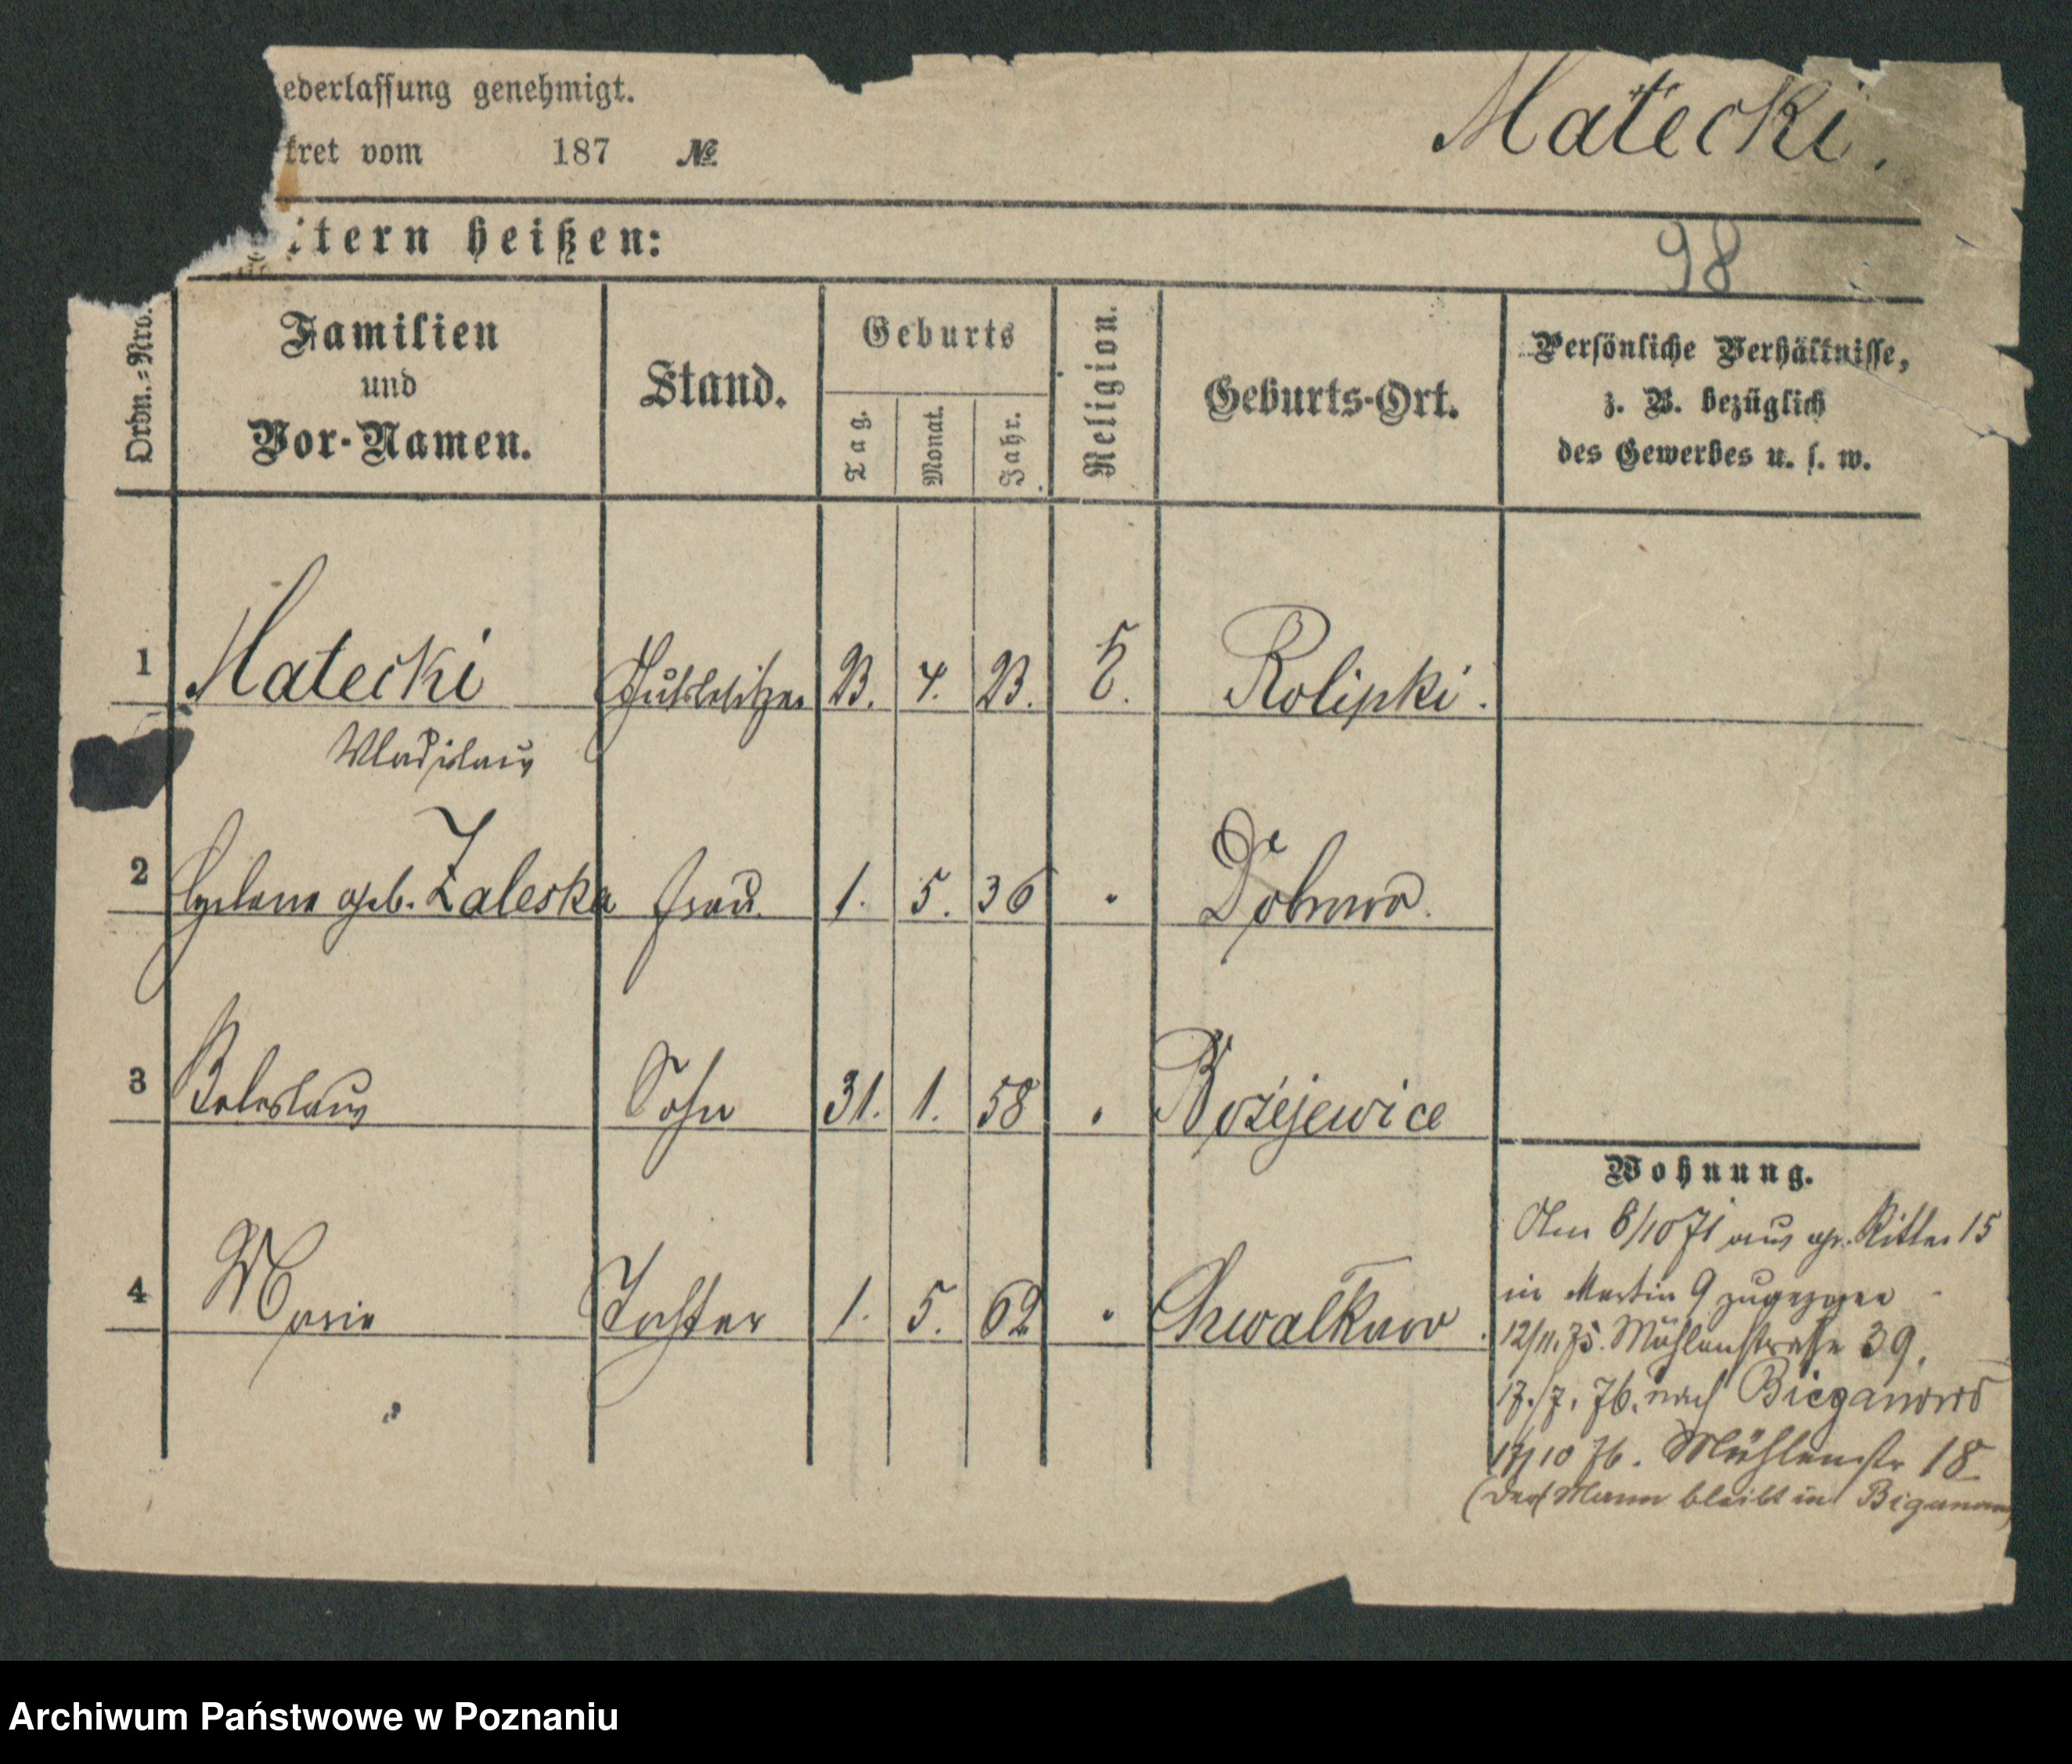 ederlassung genehmigt.
kret vom 187 №
Matecki.
ltern heißen:
98
Ordn.=Nro.
Familien
und
Vor-Namen.
Stand.
Geburts
Tag.
Monat.
Jahr.
Religion.
Geburts-Ort.
Persönliche Verhältnisse,
z. B. bezüglich
des Gewerbes u. s. w.
1 Matecki Gutsbesitzer 23. 4. 23. Rolipki.
Wladislaus
2 geb. Zaleska Frau. 1. 5. 36 "
3 Boleslaus Sohn 31. 1. 58 " Bożejewice
4 Marie Tochter 1. 5. 62 " Chwalkowo.
Wohnung.
Am 6/10 71 aus gr. Ritter 15
in Martin 9 zugezogen
12/11. 75. Mühlenstraße 39.
17./7. 76. nach Bieganowo
17/10 76. Mühlenstr 18
(Der Mann bleibt in Biganowo)
Archiwum Państwowe w Poznaniu